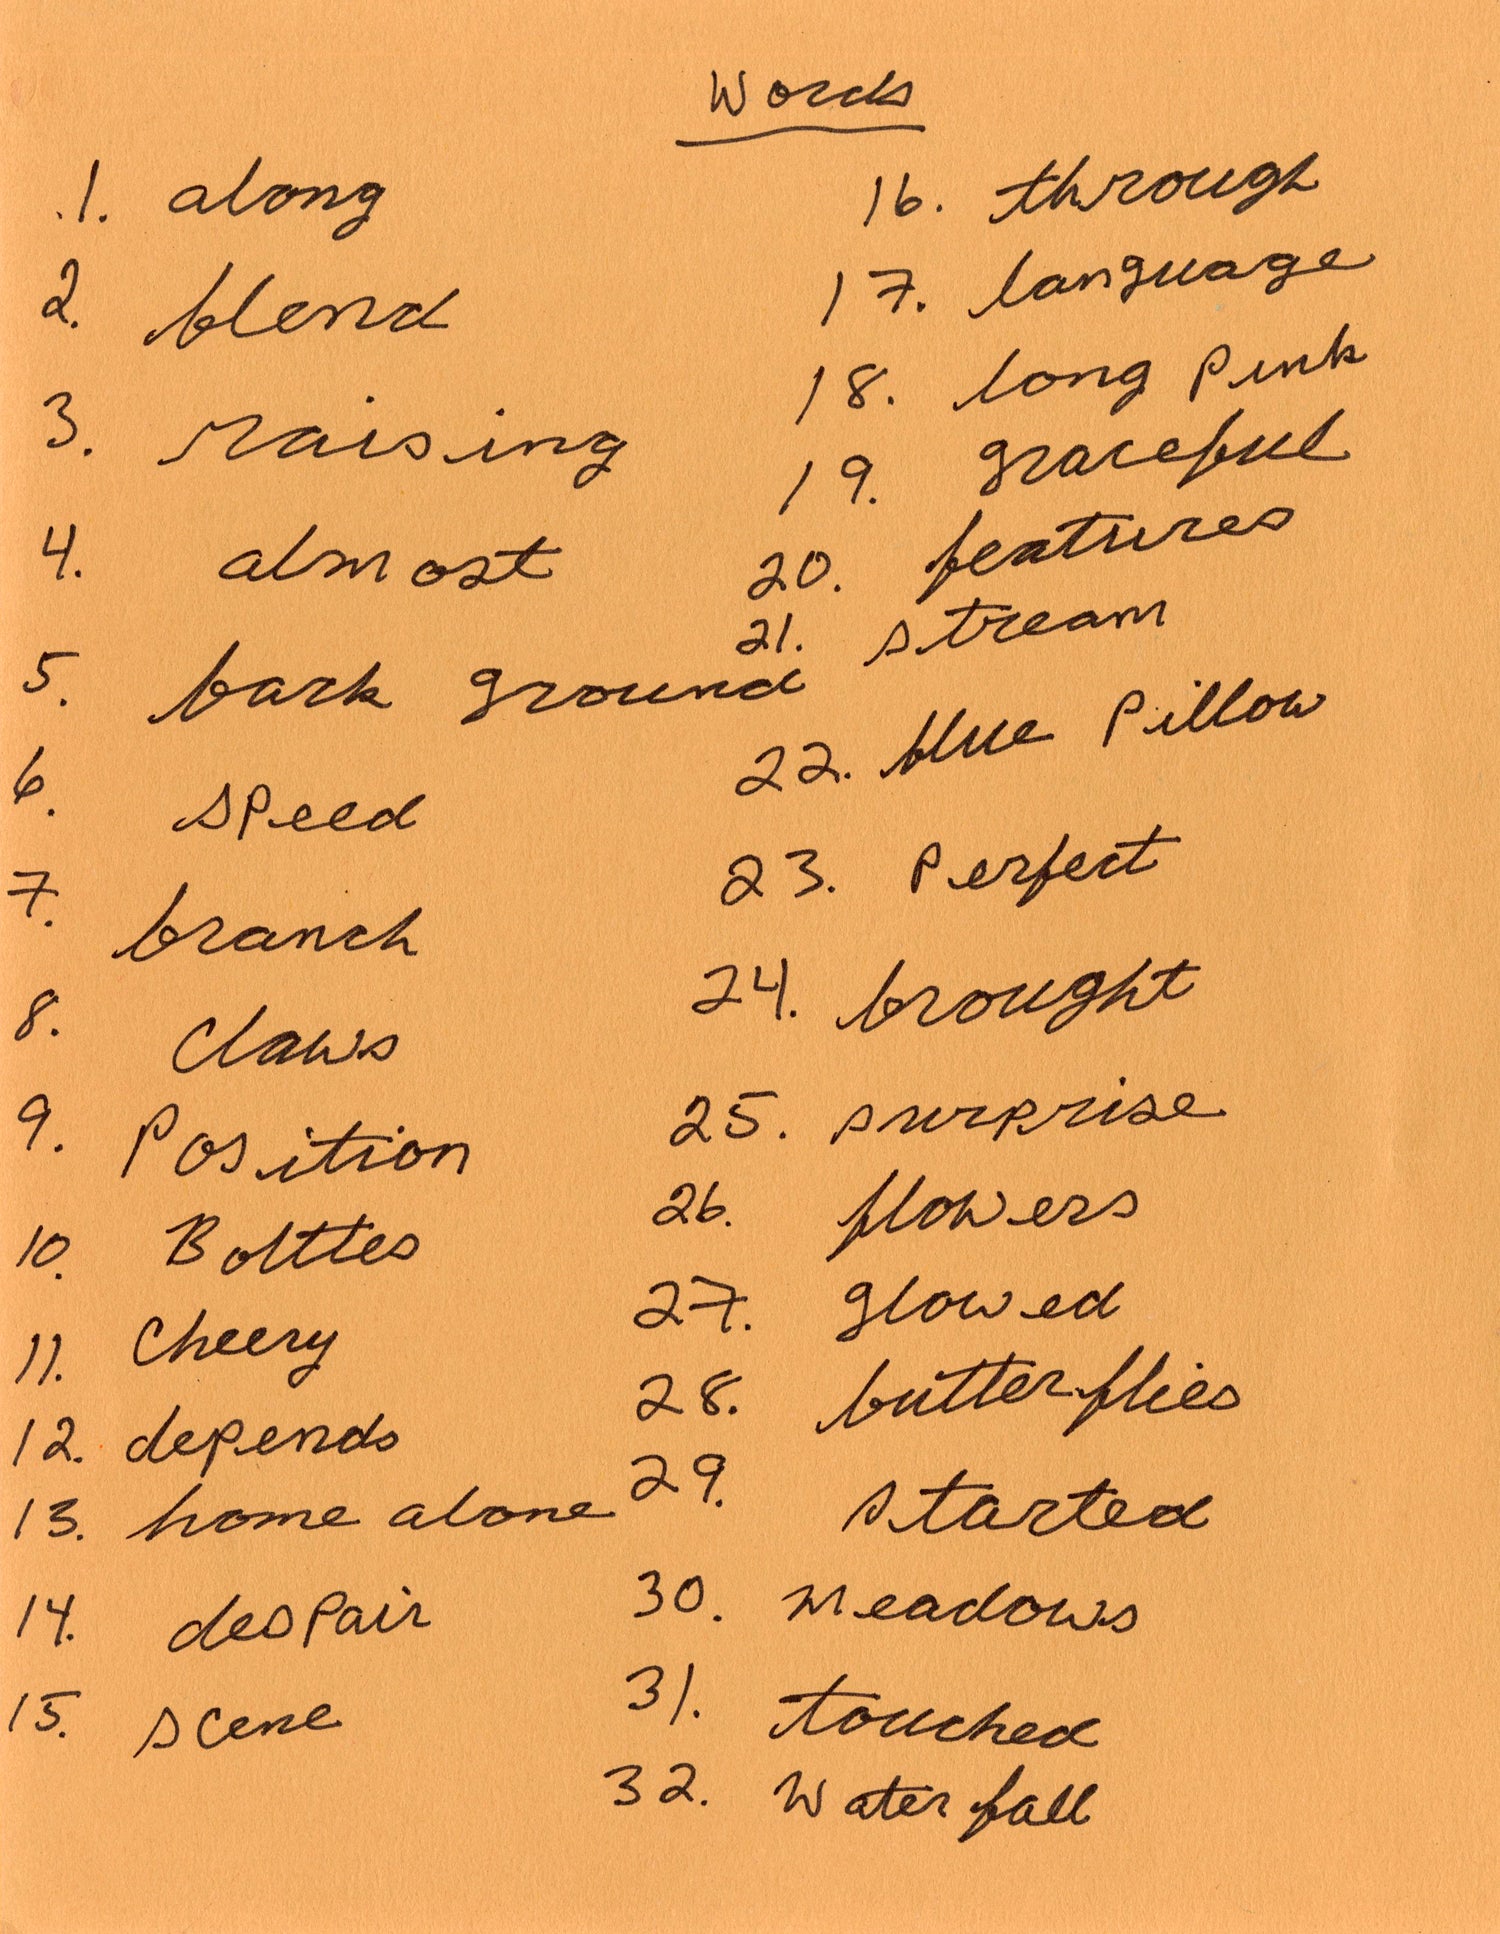 Words
1. along
2. blend
3. raising
4. almost
5. back ground
6. speed
7. branch
8. Claws
9. Position
10. Bolttes
11. Cheery
12. depends
13. home alone
14. despair
15. scene
16. through
17. language
18. long pink
19. graceful
20. features
21. stream
22. blue Pillow
23. Perfect
24. brought
25. surprise
26. flowers
27. glowed
28. butterflies
29. started
30. meadows
31. touched
32. Water fall